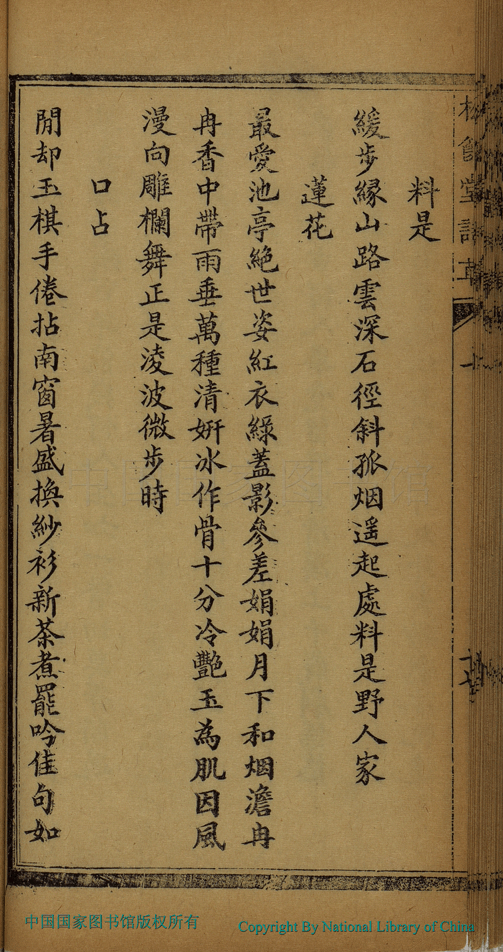 料是
緩步緣山路雲深石徑斜孤烟遥起處料是野人家
蓮花
最愛池亭絶世姿紅衣綠蓋影參差娟娟月下和烟澹冉
冉香中帶雨垂萬種清妍冰作骨十分冷艷玉為肌因風
漫向雕欄舞正是淩波微步時
口占
閒却玉棋手倦拈南窗暑盛換紗衫新茶煮罷吟佳句如
中国国家图书馆版权所有
Copyright By National Library of China